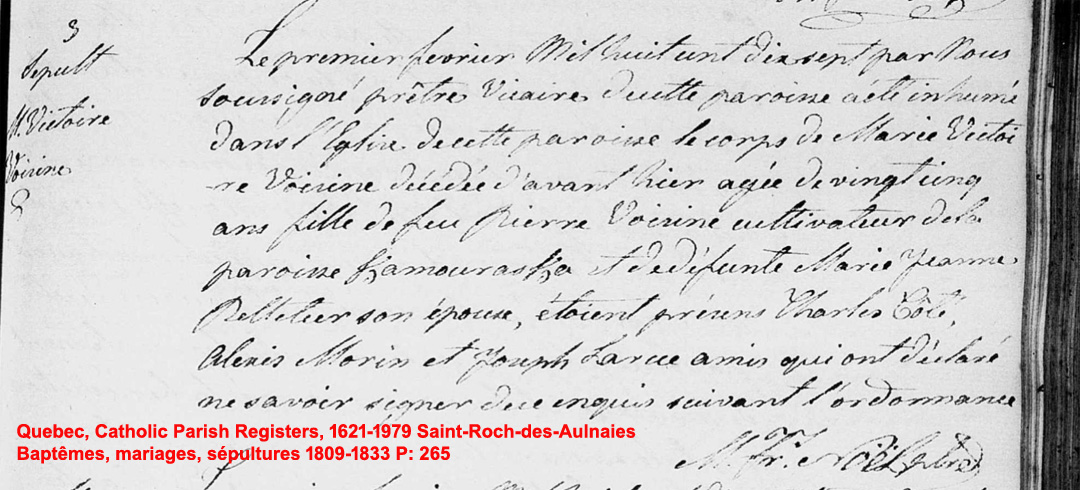 3
Sepult
M. Victoire
Voisine
Le premier fevrier Mil huit cent dix sept par Nous
soussigné prêtre Vicaire de cette paroisse a été inhumé
dans l'Eglise de cette paroisse le corps de Marie Victoi
-re Voisine décédée d'avant hier agée de vingt cinq
ans fille de feu Pierre Voisine cultivateur de la
paroisse Kamouraska et de défunte Marie Jeanne
Pelletier son épouse, étoient présens Charles Côté,
Alexis Morin et Joseph Larue amis qui ont déclaré
ne savoir signer de ce enquis suivant l'ordonnance
M. Fr. Noël ptre
Quebec, Catholic Parish Registers, 1621-1979 Saint-Roch-des-Aulnaies
Baptêmes, mariages, sépultures 1809-1833 P: 265